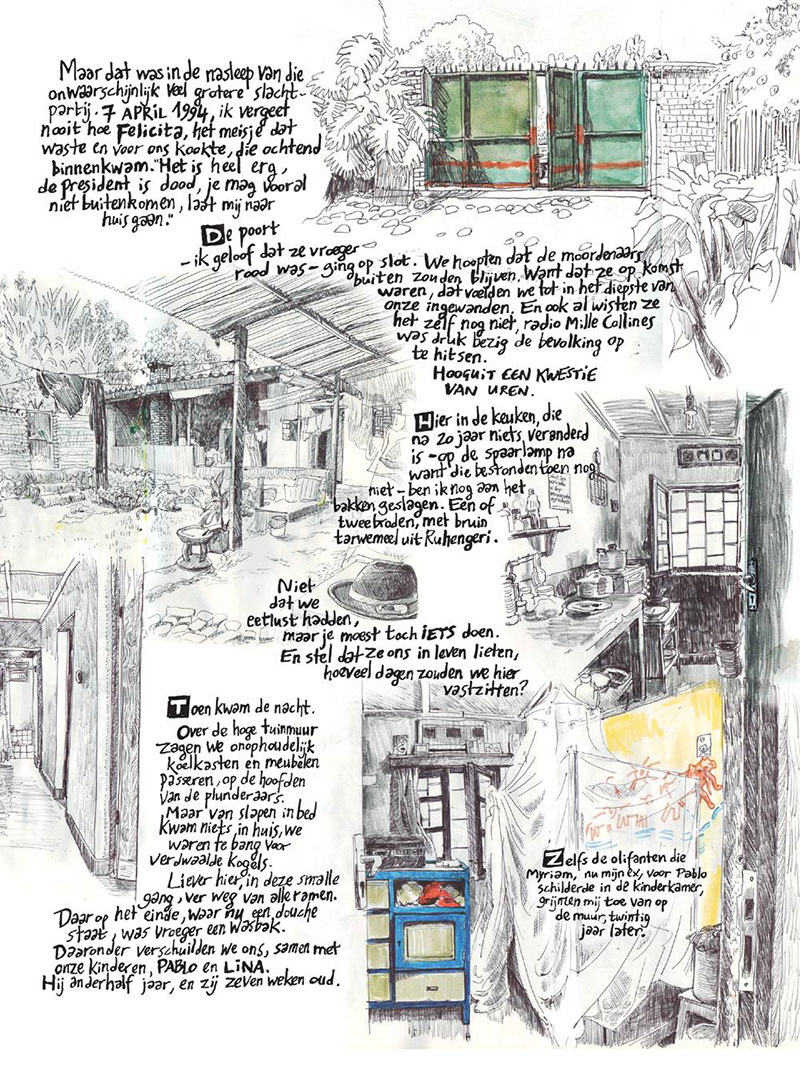 Maar dat was in de nasleep van die
onwaarschijnlijk veel grotere slacht-
partij. 7 APRIL 1994, ik vergeet
nooit hoe Felicita, het meisje dat
waste en voor ons kookte, die ochtend
binnenkwam. "Het is heel erg,
de president is dood, je mag vooral
niet buitenkomen, laat mij naar
huis gaan."
De poort
- ik geloof dat ze vroeger
rood was - ging op slot. We hoopten dat de moordenaars
buiten zouden blijven. Want dat ze op komst
waren, dat voelden we tot in het diepste van
onze ingewanden. En ook al wisten ze
het zelf nog niet, radio Mille Collines
was druk bezig de bevolking op
te hitsen.
HOOGUIT EEN KWESTIE
VAN UREN.
Hier in de keuken, die
na 20 jaar niets veranderd
is - op de spaarlamp na
want die bestonden toen nog
niet - ben ik nog aan het
bakken geslagen. Een of
twee broden, met bruin
tarwemeel uit Ruhengeri.
Niet
dat we
eetlust hadden,
maar je moest toch IETS doen.
En stel dat ze ons in leven lieten,
hoeveel dagen zouden we hier
vastzitten?
Toen kwam de nacht.
Over de hoge tuinmuur
zagen we onophoudelijk
koelkasten en meubelen
passeren, op de hoofden
van de plunderaars.
Maar van slapen in bed
kwam niets in huis, we
waren te bang voor
verdwaalde kogels.
Liever hier, in deze smalle
gang, ver weg van alle ramen.
Daar op het einde, waar nu een douche
staat, was vroeger een wasbak.
Daaronder verschuilden we ons, samen met
onze kinderen, PABLO en LINA.
Hij anderhalf jaar, en zij zeven weken oud.
Zelfs de olifanten die
Myriam, nu mijn ex, voor Pablo
schilderde in de kinderkamer,
grijnzen mij toe van op
de muur, twintig
jaar later.